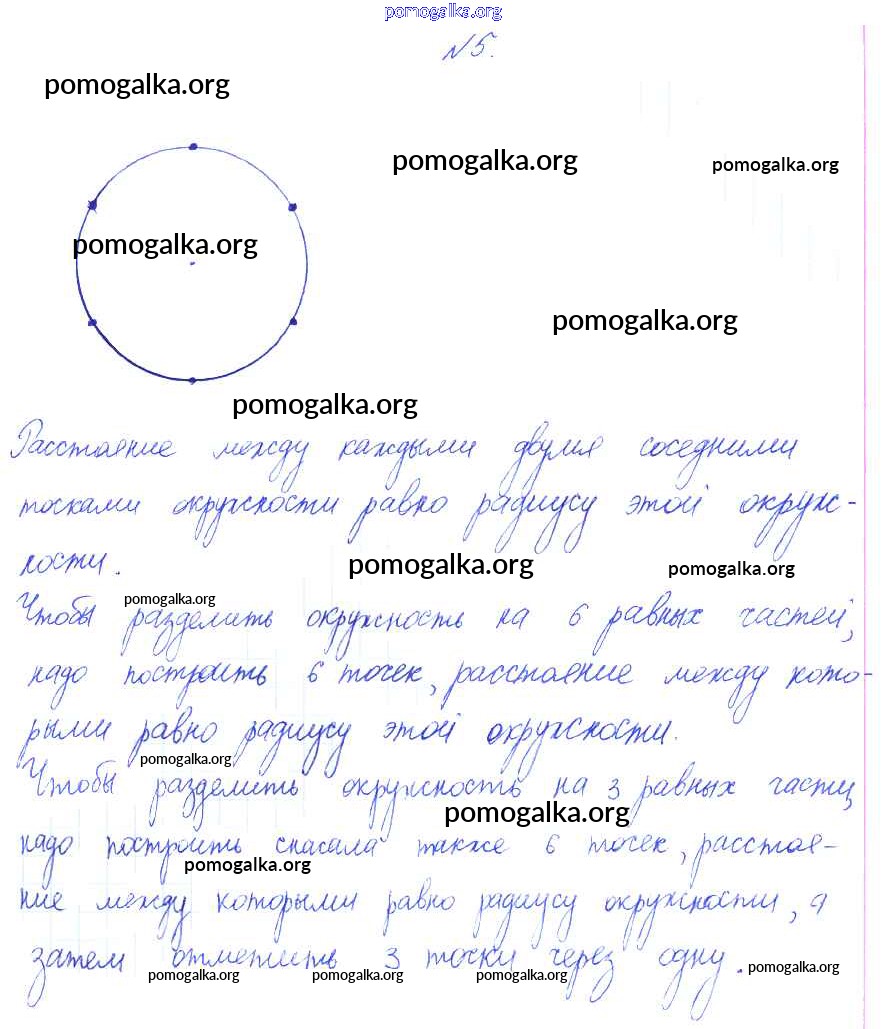 pomogalka.org
№5.
pomogalka.org
pomogalka.org
pomogalka.org
pomogalka.org
pomogalka.org
pomogalka.org
Расстояние между каждыми двумя соседними
точками окружности равно радиусу этой окруж-
ности.
pomogalka.org
pomogalka.org
pomogalka.org
Чтобы разделить окружность на 6 равных частей,
надо построить 6 точек, расстояние между кото-
рыми равно радиусу этой окружности.
pomogalka.org
Чтобы разделить окружность на 3 равных части,
pomogalka.org
надо построить сначала также 6 точек, расстоя-
pomogalka.org
ние между которыми равно радиусу окружности, а
затем отметить 3 точки через одну.
pomogalka.org
pomogalka.org
pomogalka.org
pomogalka.org